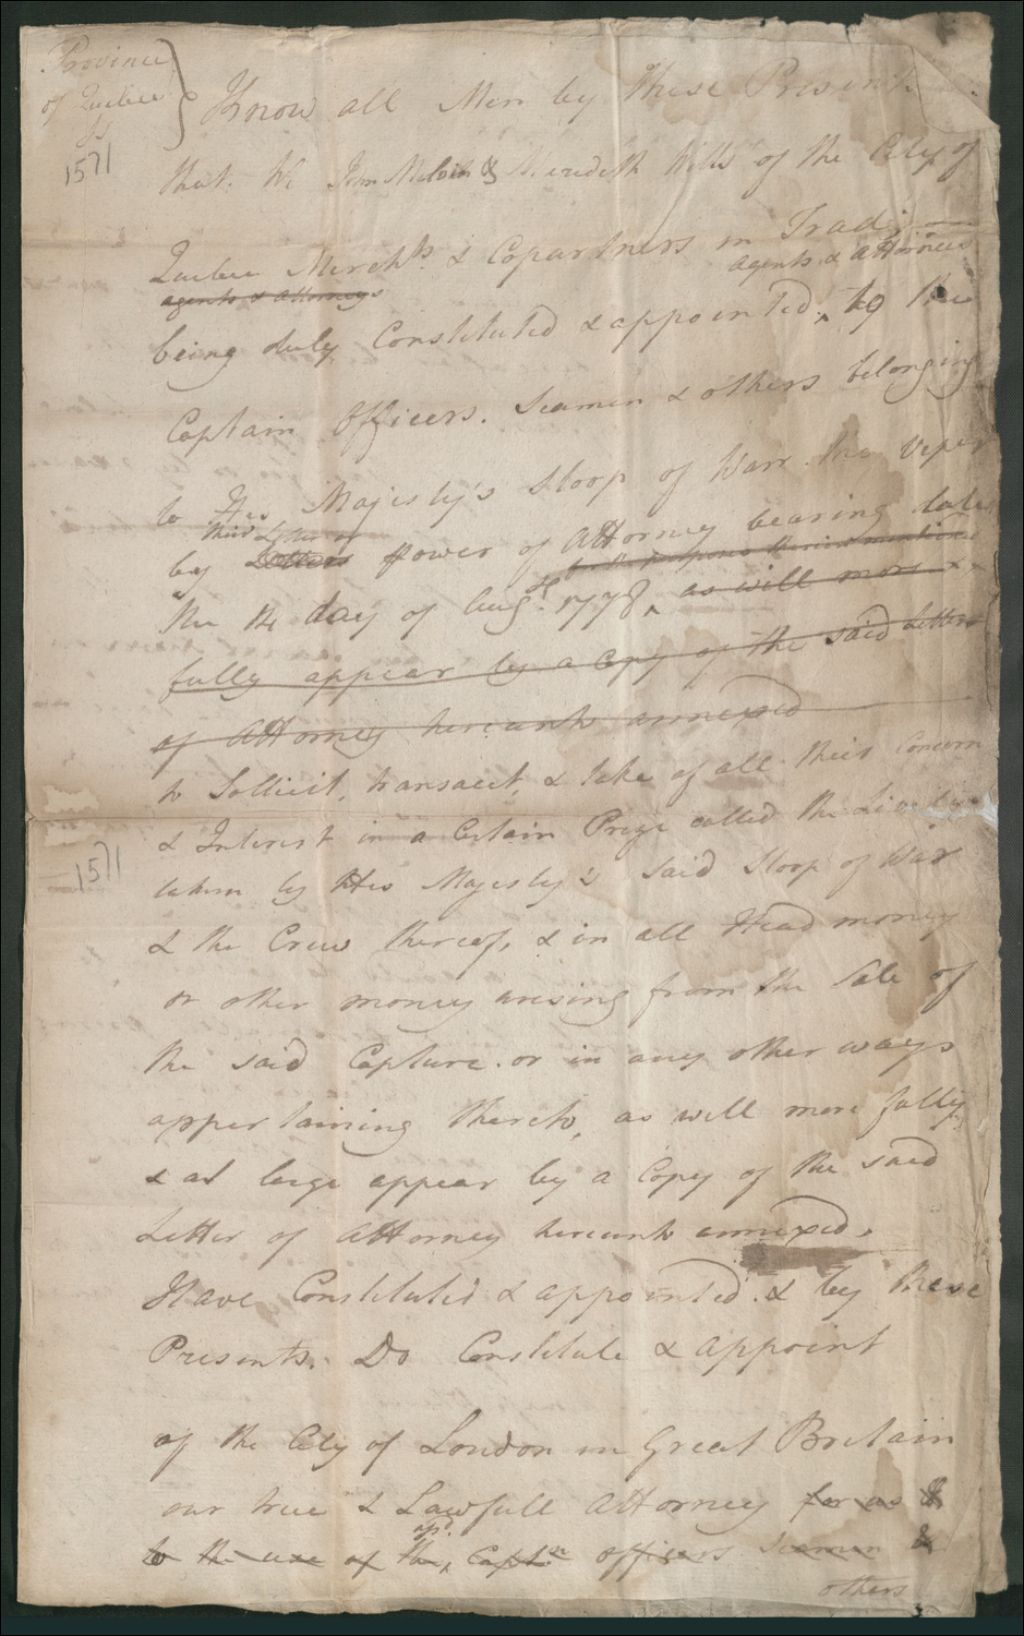 Province
of Quebec
ss
1571
Know all Men by these Presents
that We John Melvin & Meredith Wills of the City of
Quebec Merchts. & Copartners in Trade
agents & attorneys
agents & attorneys
being duly Constituted & appointed, to the
Captain Officers. Seamen & others belonging
to His Majesty's Sloop of Warr the Viper
their Letter of
by Letters power of Attorney bearing date
for the purposes therein mentioned
the the day of Augst. 1778, as will more
fully appear by a Copy of the said Letters
of Attorney hereunto annexed
to Sollicit, transact, & take of all their Concern
& Interest in a Certain Prize called the
1571
taken by His Majesty's said Sloop of War
& the Crew thereof, & in all Head money
or other money arising from the Sale of
the said Capture. or in any other ways
appertaining thereto, as will more fully
& at large appear by a Copy of the said
Letter of Attorney hereunto annexed.
Have Constituted & appointed. & by these
Presents. Do Constitute & appoint
of the City of London in Great Britain
our true & Lawfull Attorney for us &
to the use of the, Captn officers Seamen &
others